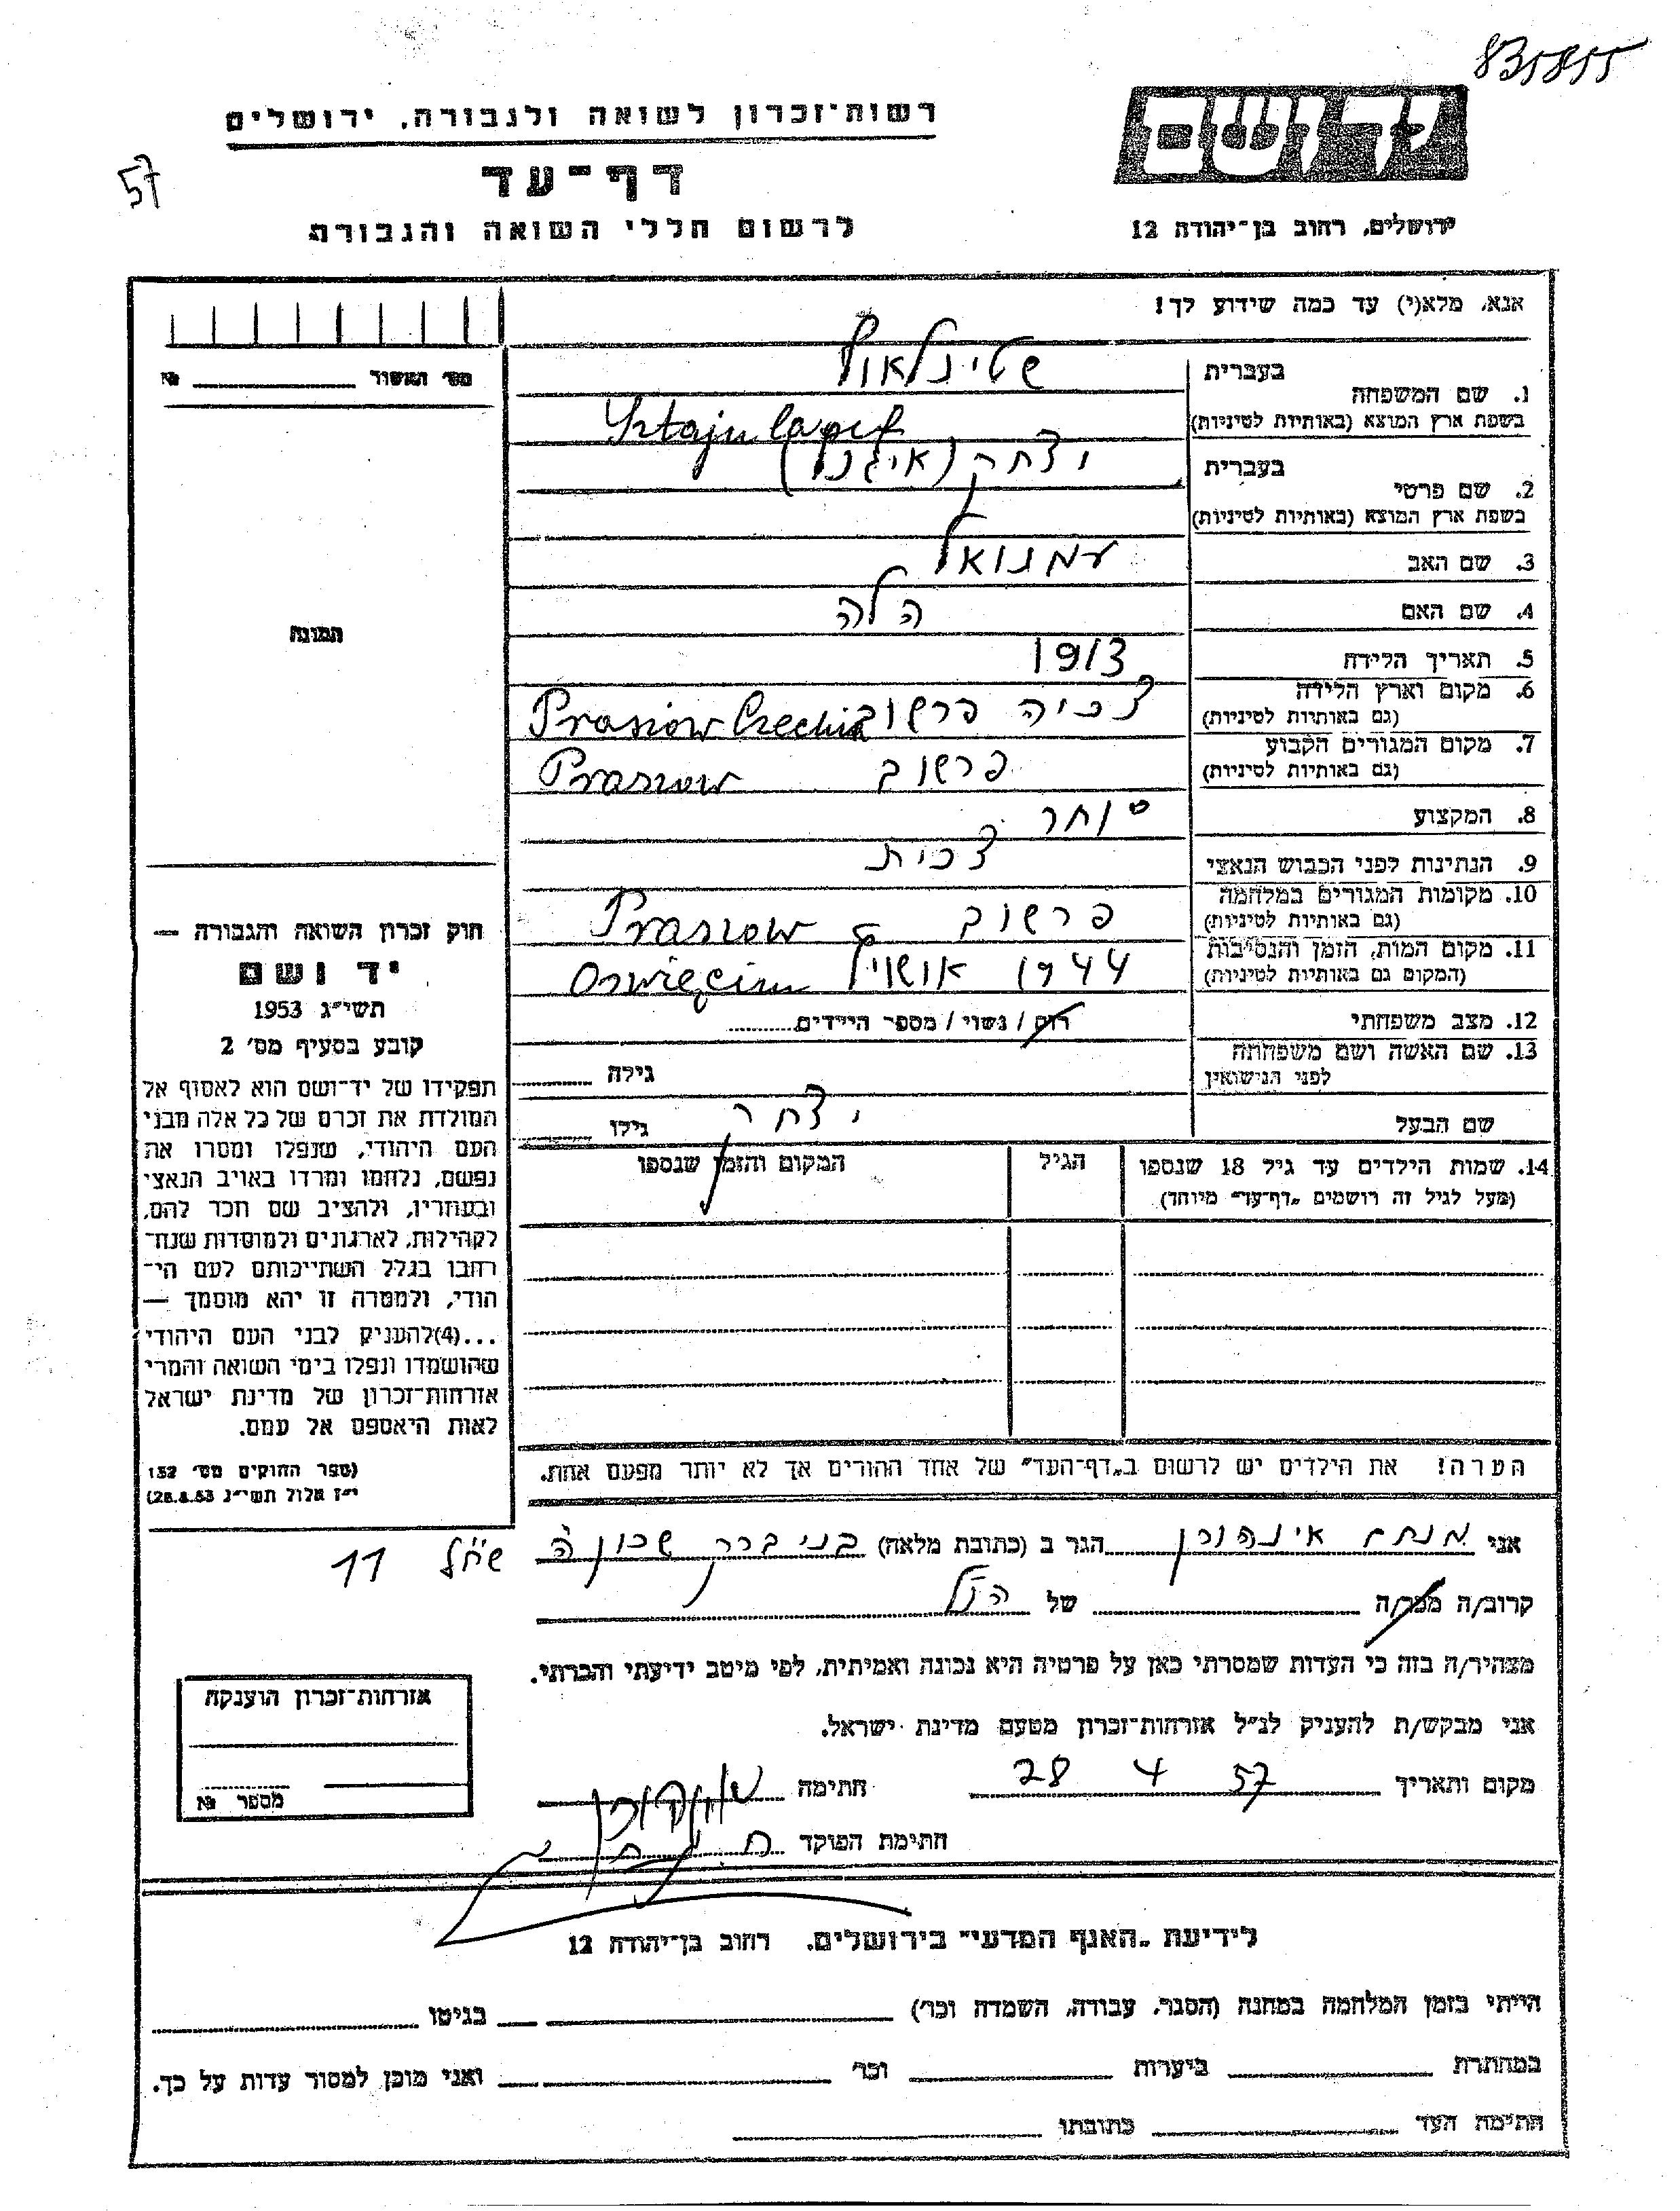 835855
רשות־זכרון לשואה ולגבורה, ירושלים
57
דף־עד
לרשום חללי השואה והגבורה
יד ושם
ירושלים, רחוב בן־יהודה 12
אנא, מלא(י) עד כמה שידוע לך!
מס' האשור №
התמונה
1. שם המשפחה
בעברית
שטינלאוף
בשפת ארץ המוצא (באותיות לטיניות)
Sztajnlapuf
2. שם פרטי
בעברית
יצחק
בשפת ארץ המוצא (באותיות לטיניות)
3. שם האב עמנואל
4. שם האם הלה
5. תאריך הלידה 1913
6. מקום וארץ הלידה צכיה פרשוב
(גם באותיות לטיניות) Prasiow Czechia
7. מקום המגורים הקבוע פרשוב
(גם באותיות לטיניות) Prasiow
8. המקצוע סוחר
9. הנתינות לפני הכבוש הנאצי צכית
10. מקומות המגורים במלחמה פרשוב
(גם באותיות לטיניות) Prasiow
11. מקום המות, הזמן והנסיבות 1944
(המקום גם באותיות לטיניות) Oswięcim
12. מצב משפחתי רוק / נשוי / מספר הילדים
13. שם האשה ושם משפחתה
לפני הנישואין גילה
שם הבעל יצחק גילו
14. שמות הילדים עד גיל 18 שנספו הגיל המקום והזמן שנספו
(מעל לגיל זה רושמים "דף־עד" מיוחד)
הערה! את הילדים יש לרשום ב"דף־העד" של אחד ההורים אך לא יותר מפעם אחת.
חוק זכרון השואה והגבורה —
יד ושם
תשי"ג 1953
קובע בסעיף מס' 2
תפקידו של יד־ושם הוא לאסוף אל
המולדת את זכרם של כל אלה מבני
העם היהודי, שנפלו ומסרו את
נפשם, נלחמו ומרדו באויב הנאצי
ובעוזריו, ולהציב שם וזכר להם,
לקהילות, לארגונים ולמוסדות שנח־
רבו בגלל השתייכותם לעם הי־
הודי, ולמטרה זו יהא מוסמך —
...(4)להעניק לבני העם היהודי
שהושמדו ונפלו בימי השואה והמרי
אזרחות־זכרון של מדינת ישראל
לאות היאספם אל עמם.
(ספר החוקים מס' 132
י"ז אלול תשי"ג 28.8.53)
אני מנחם אינהורן הגר ב (כתובת מלאה) בני ברק שכון ה
11
קרוב/ה מכר/ה של הנ"ל
מצהיר/ה בזה כי העדות שמסרתי כאן על פרטיה היא נכונה ואמיתית, לפי מיטב ידיעתי והכרתי.
אני מבקש/ת להעניק לנ"ל אזרחות־זכרון מטעם מדינת ישראל.
מקום ותאריך 28 4 57 חתימה
חתימת הפוקד
אזרחות־זכרון הוענקה
מספר №
לידיעת "האגף המדעי" בירושלים, רחוב בן־יהודה 12
הייתי בזמן המלחמה במחנה (הסגר, עבודה, השמדה וכו') בגיטו
במחתרת ביערות וכו' ואני מוכן למסור עדות על כך.
חתימת העד כתובתו